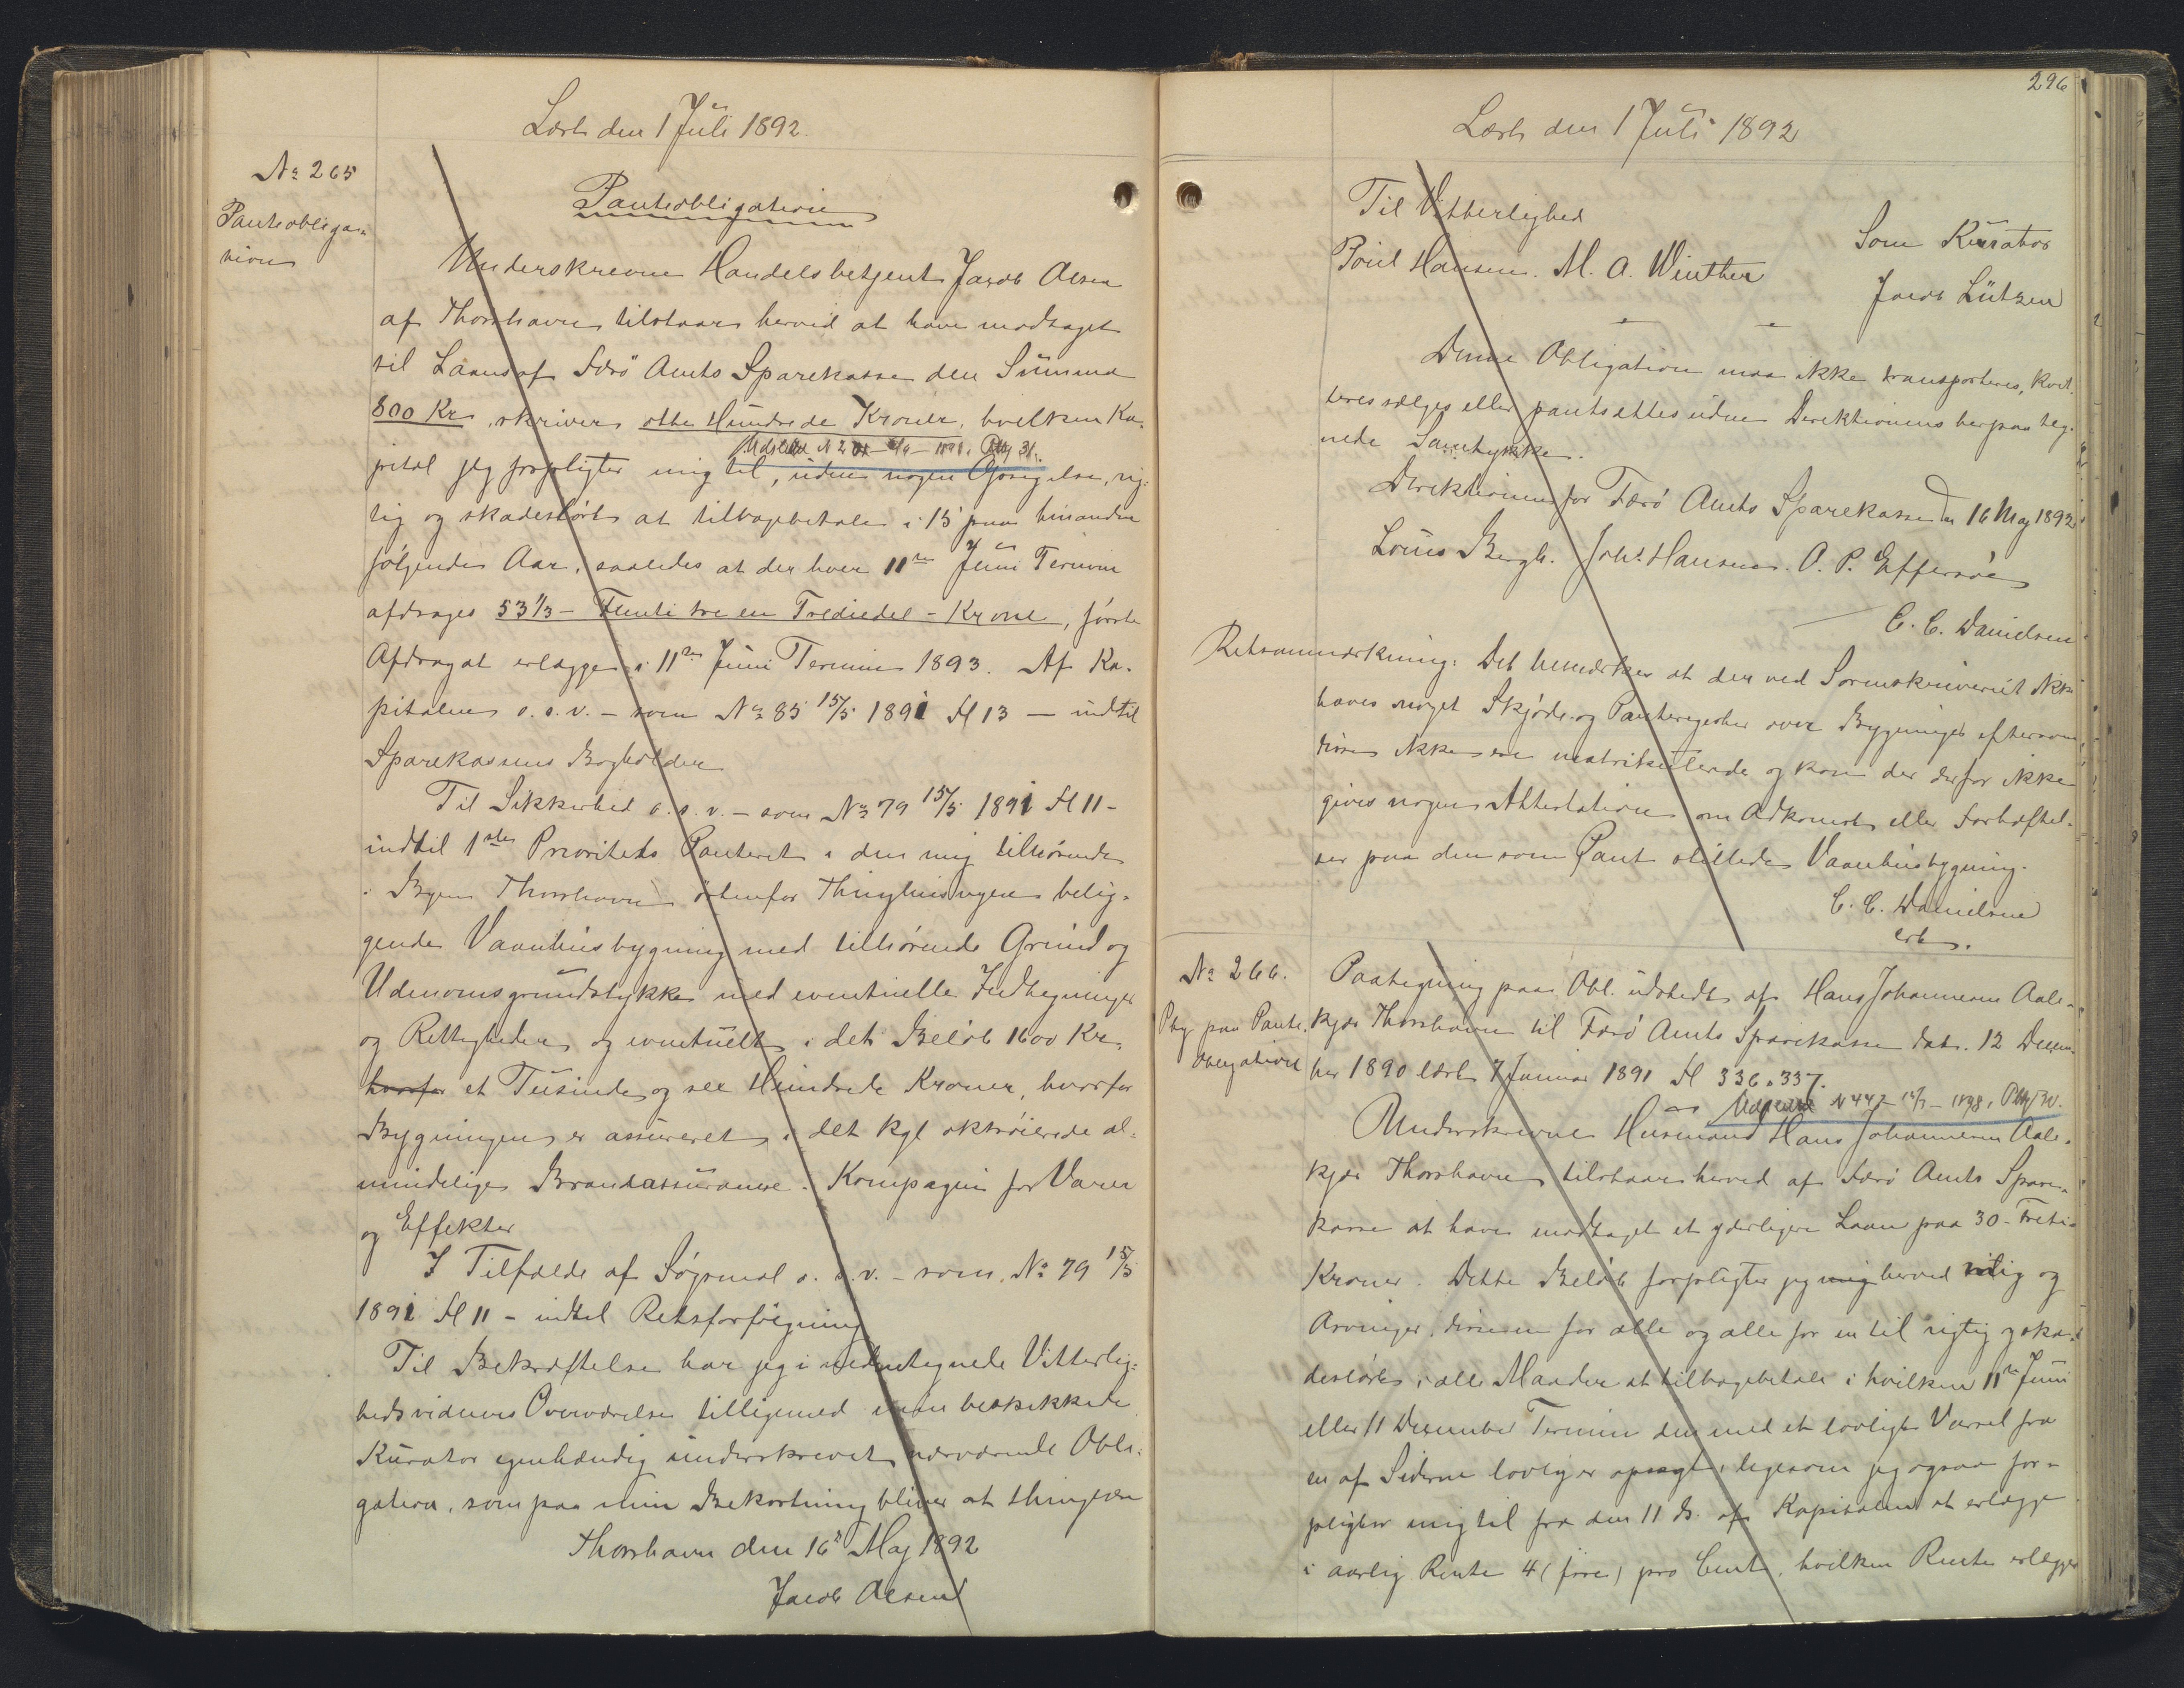 Læst den 1 Juli 1892.
No 265
Panteobliga-
tion
Panteobligation
Underskrevne Handelsbetjent Jacob Olsen
af Thorshavn tilstaar herved at have modtaget
til Laans af Færø Amts Sparekasse den Summa
800 Kr, skriver otte Hundrede Kroner, hvilken Ka-
pital jeg forpligter mig til, uden nogen Opsigelse, rig-
tig og skadesløst at tilbagebetale i 15 paa hinanden
følgende Aar, saaledes at der hver 11te Juni Termin
afdrages 53 1/3 - Femti tre en Trediedel - Krone, første
Afdragat erlægges i 11te Juni Termin 1893. Af Ka-
pitalen o.s.v. - som No 85 15/5 1891 fl 13 - indtil
Sparekassens Bogholder
Til Sikkerhed o.s.v. - som No 79 15/5 1891 fl 11 -
indtil 1ste Prioritets Panteret i den mig tilhørende
i Byen Thorshavn østenfor Thinghusvejen belig-
gende Vaanhusbygning med tilhørende Grund og
Udenomsgrundstykke med eventuelle Indhegninger
og Rettigheder og eventuelt i det Beløb 1600 Kr.
hvorfor et Tusinde og sex Hundrede Kroner, hvorfor
Bygningen er assureret i det kgl oktroierede al-
mindelige Brandassurance Kompagni for Varer
og Effekter
I Tilfælde af Søgsmal o.s.v. - som No 79 15/5
1891 fl 11 - indtil Retsforfølgning
Til Bekræftelse har jeg i medundertegnede Vitterlig-
hedsvidners Overværelse tilligemed min beskikkede
Kurator egenhændig underskrevet nærværende Obli-
gation, som paa min Bekostning bliver at thinglæse
Thorshavn den 16d Maj 1892
Jacob Olsen
296
Læst den 1 Juli 1892
Til Vitterlighed
Poul Hansen. M. A. Winther
Som Kurator
Jacob Lützen
Denne Obligation maa ikke transporteres, kvit-
teres sælges eller pantsættes uden Direktionens herpaa teg-
nede Samtykke.
Direktionen for Færø Amts Sparekasse d 16 Maj 1892
Louis Bergh. Johs Hansen. O. P. Effersøe
C. C. Danielsen
Retsanmærkning: Det bemærkes at der ved Sorenskriveriet ikke
haves noget Skjøde- og Panteregister over Bygninger eftersom
disse ikke ere matrikulerede og kan der derfor ikke
gives nogen Attestation om Adkomst eller Forhæftel-
ser paa den som Pant stillede Vaanhusbygning.
C. C. Danielsen
cst.
No 266.
Ptg paa Pante-
obligation
Paategning paa Obl. udstedt af Hans Johannesen Aale-
kjær Thorshavn til Færø Amts Sparekasse dat. 12 Decem-
ber 1890 læst 7 Januar 1891 fl 336 & 337.
Underskrevne Husmand Hans Johannesen Aale-
kjær Thorshavn tilstaar herved af Færø Amts Spare-
kasse at have modtaget et yderligere Laan paa 30 - Treti -
Kroner. Dette Beløb forpligter jeg mig herved mig og
Arvinger, een for alle og alle for en til rigtig og ska-
desløst i alle Maader at tilbagebetale i hvilken 11te Juni
eller 11 December Termin den med et lovligt Varsel fra
en af Siderne lovlig er opsagt, ligesom jeg ogsaa for-
pligter mig til fra den 11 ds. af Kapitalen at erlægge
i aarlig Rente 4 (fire) pro Cent, hvilken Rente erlægges